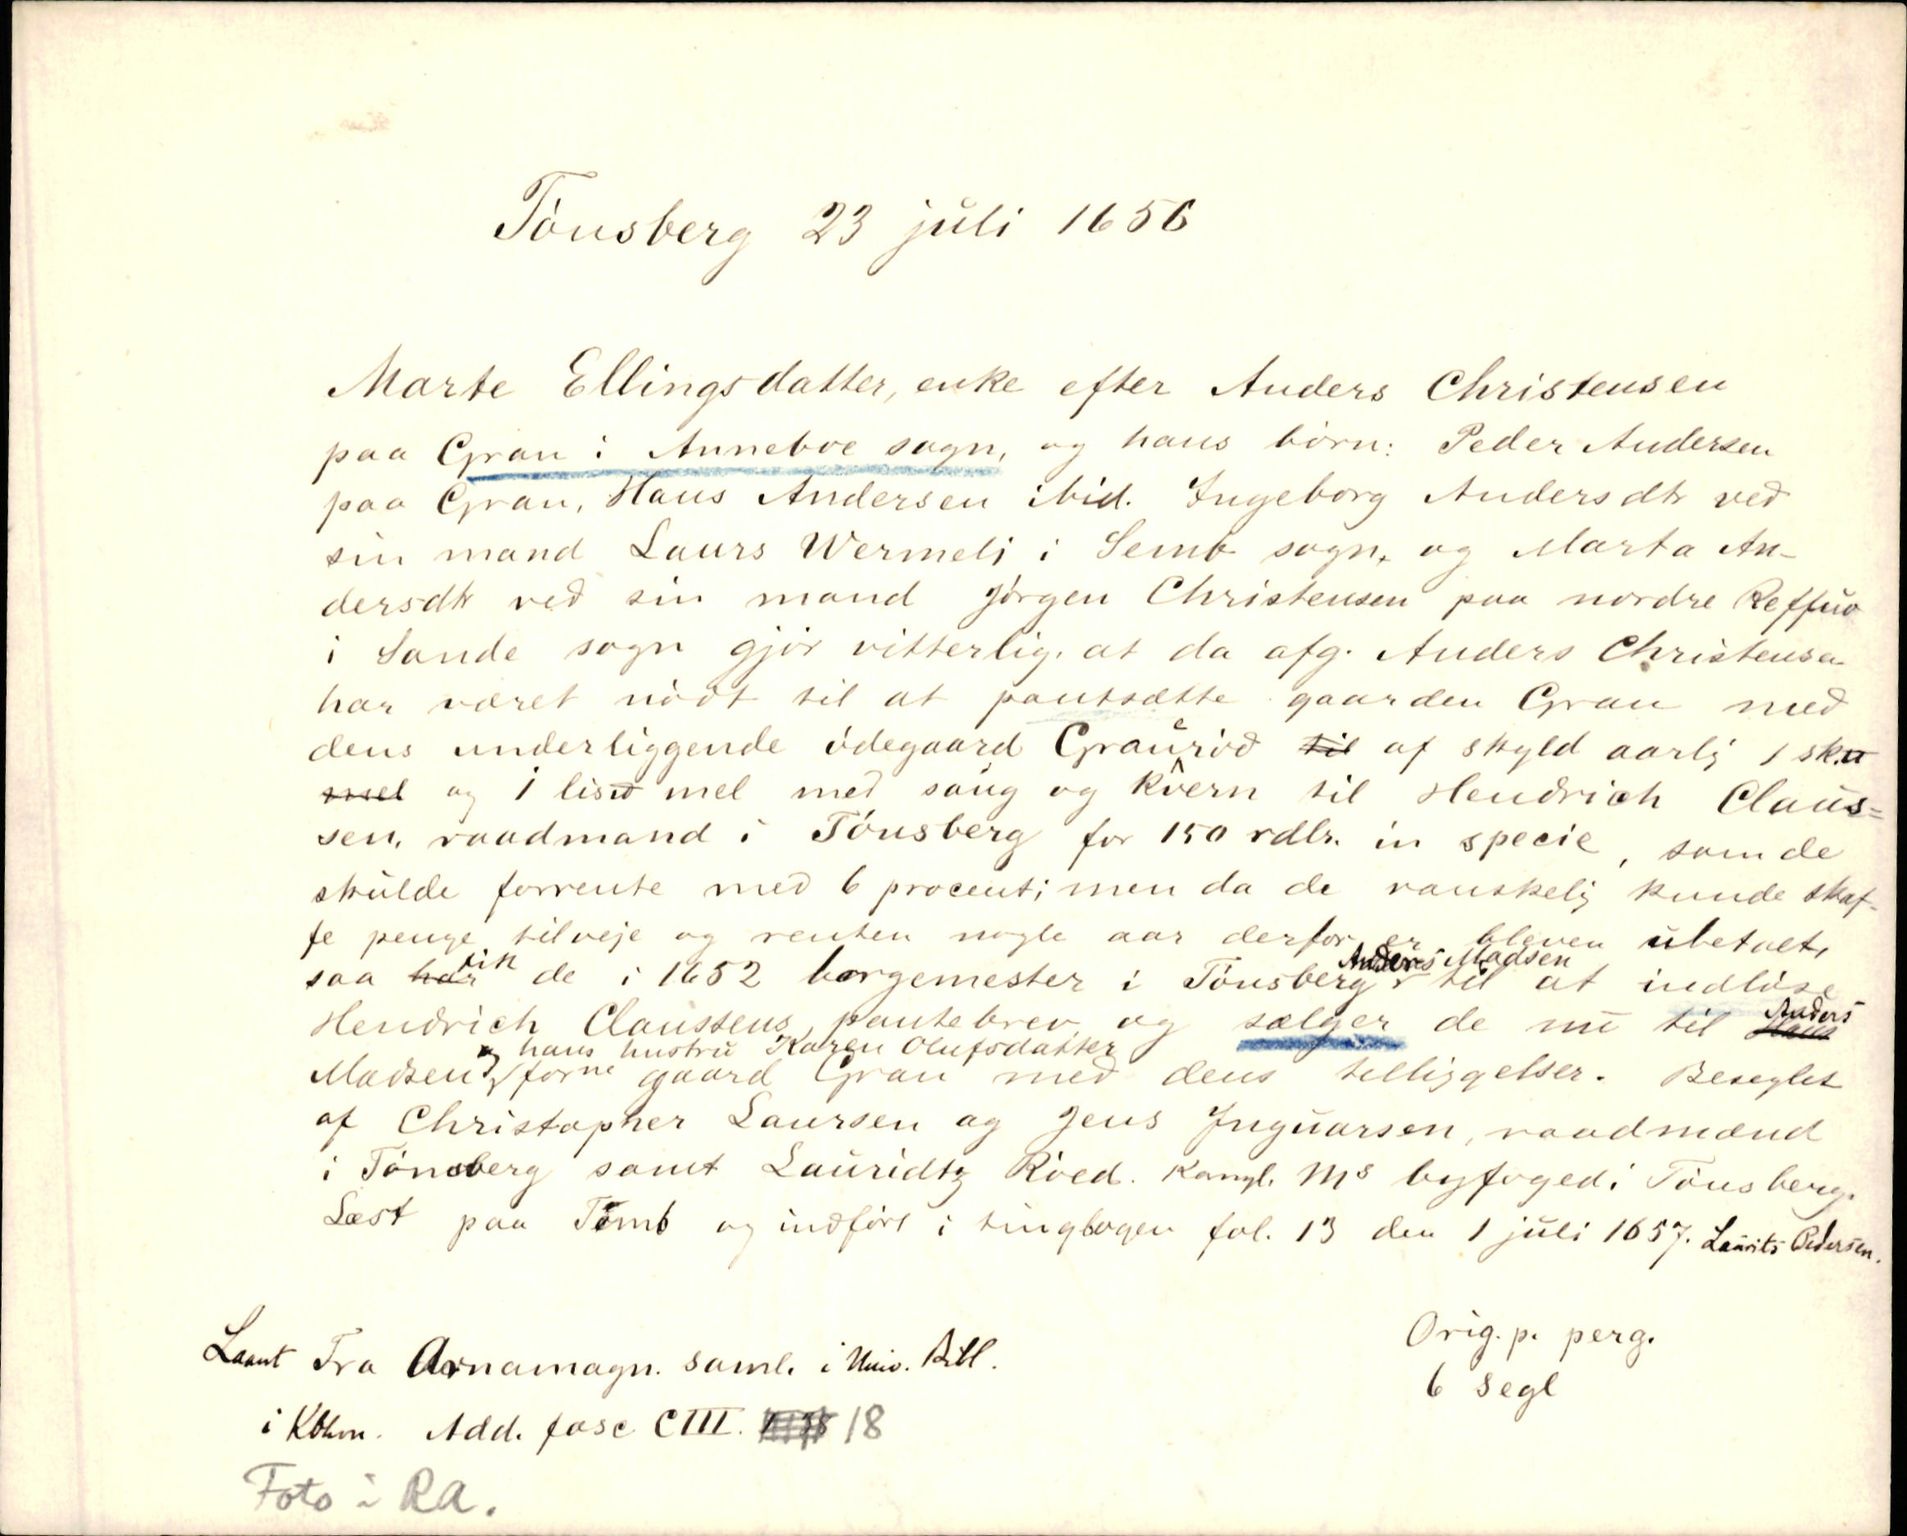 Tönsberg 23 juli 1656
Marte Ellingsdatter, enke efter Anders Christensen
paa Gran i Anneboe sogn, og hans börn: Peder Andersen
paa Gran, Hans Andersen ibid. Ingeborg Andersdtr ved
sin mand Laurs Wermeli i Semb sogn, og Marta An-
dersdtr ved sin mand Jörgen Christensen paa nordre Reffuo
i Sande sogn gjör vitterlig, at da afg. Anders Christensen
har været nödt til at pantsætte gaarden Gran med
dens underliggende ödegaard Graneröd til af skyld aarlig 1 sk℔
mel og 1 lis℔ mel med saug og kvern til Hendrich Claus=
sen, raadmand i Tönsberg for 150 rdlr. in specie, som de
skulde forrente med 6 procent; men da de vanskelig kunde skaf-
fe penge tilveje og renten nogle aar derfor er bleven ubetalt,
saa har fik de i 1652 borgemester i Tönsberg Anders Madsen til at indlöse
Hendrich Claussens pantebrev og sælger de nu til Hans Anders
Madsen og hans hustru Karen Olufsdatter forne gaard Gran med dens tilliggelser. Beseglet
af Christopher Laursen og Jens Inguarsen, raadmænd
i Tönsberg samt Lauridtz Röed. Kongl. Ms byfoged i Tönsberg.
Læst paa Tömb og indfört i tingbogen fol. 13 den 1 juli 1657. Laurits Pedersen.
Orig. p. perg.
6 segl
Laant Fra Arnamagn. saml. i Univ. Bibl.
i Kbhvn. Add. fasc CIII. 18
Foto i RA.